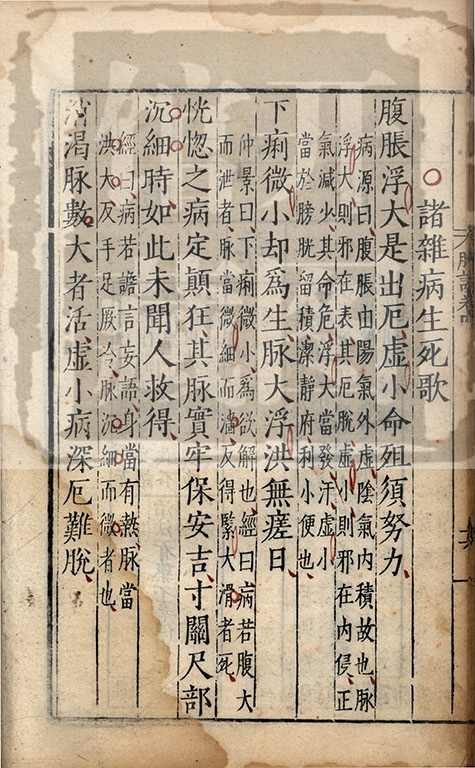 諸雜病生死歌
腹脹浮大是出厄虛小命殂須努力
病源曰腹脹由陽氣外虛陰氣內積故也脈
浮大則邪在表其厄脫虛小則邪在內侵正
氣減少其命危浮大當發汗虛小
當於膀胱留積潔靜府利小便也
下痢微小却為生脈大浮洪無瘥日
仲景曰下痢微小為欲解也經曰病若腹大
而泄者脈當微細而濇反得緊大滑者死
恍惚之病定顛狂其脈實牢保安吉寸關尺部
沉細時如此未聞人救得
經曰病若譫言妄語身當有熱脈當
洪大反手足厥冷脈沉細而微者也
消渴脈數大者活虛小病深厄難脫